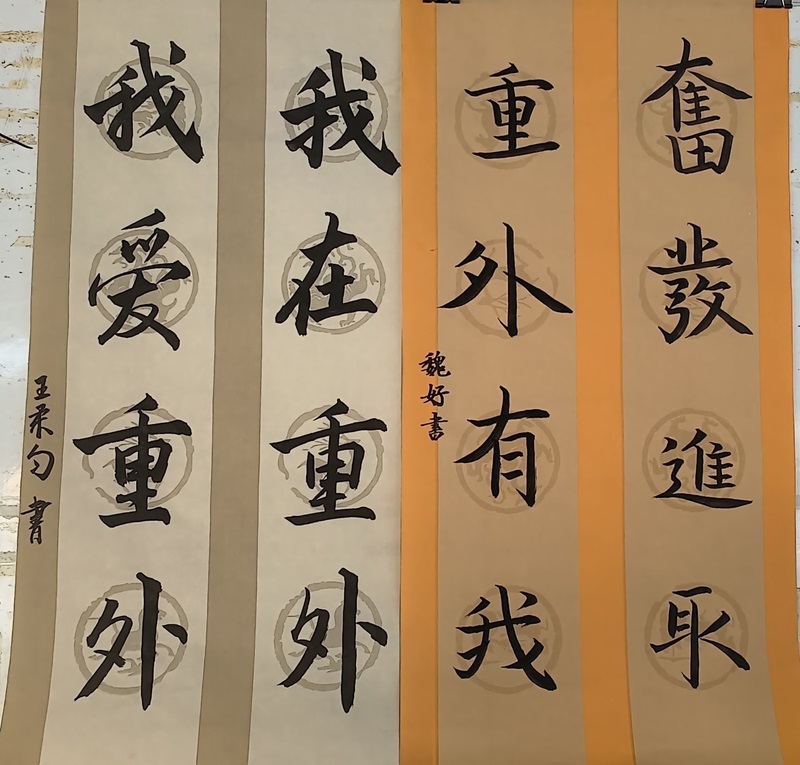 奮發進取
重外有我
魏好書
我在重外
我愛重外
王柔勻書